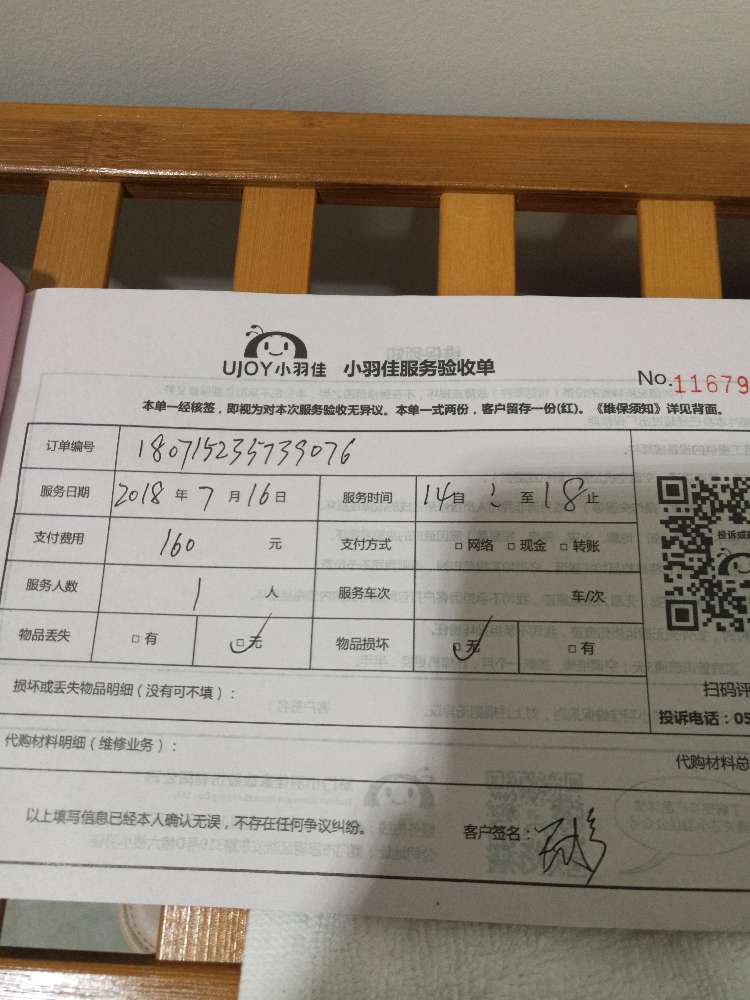 UJOY小羽佳 小羽佳服务验收单
No.11679
本单一经核签，即视为对本次服务验收无异议。本单一式两份，客户留存一份(红)。《维保须知》详见背面。
订单编号 180715235739076
服务日期 2018 年 7 月 16 日 服务时间 14 自 : 至 18 止
支付费用 160 元 支付方式 □ 网络 □ 现金 □ 转账
服务人数 1 人 服务车次 车/次
物品丢失 □ 有 □ 无 物品损坏 □ 无 □ 有
扫码评
损坏或丢失物品明细（没有可不填）：
投诉电话：05
代购材料明细（维修业务）：
代购材料总
以上填写信息已经本人确认无误，不存在任何争议纠纷。 客户签名：